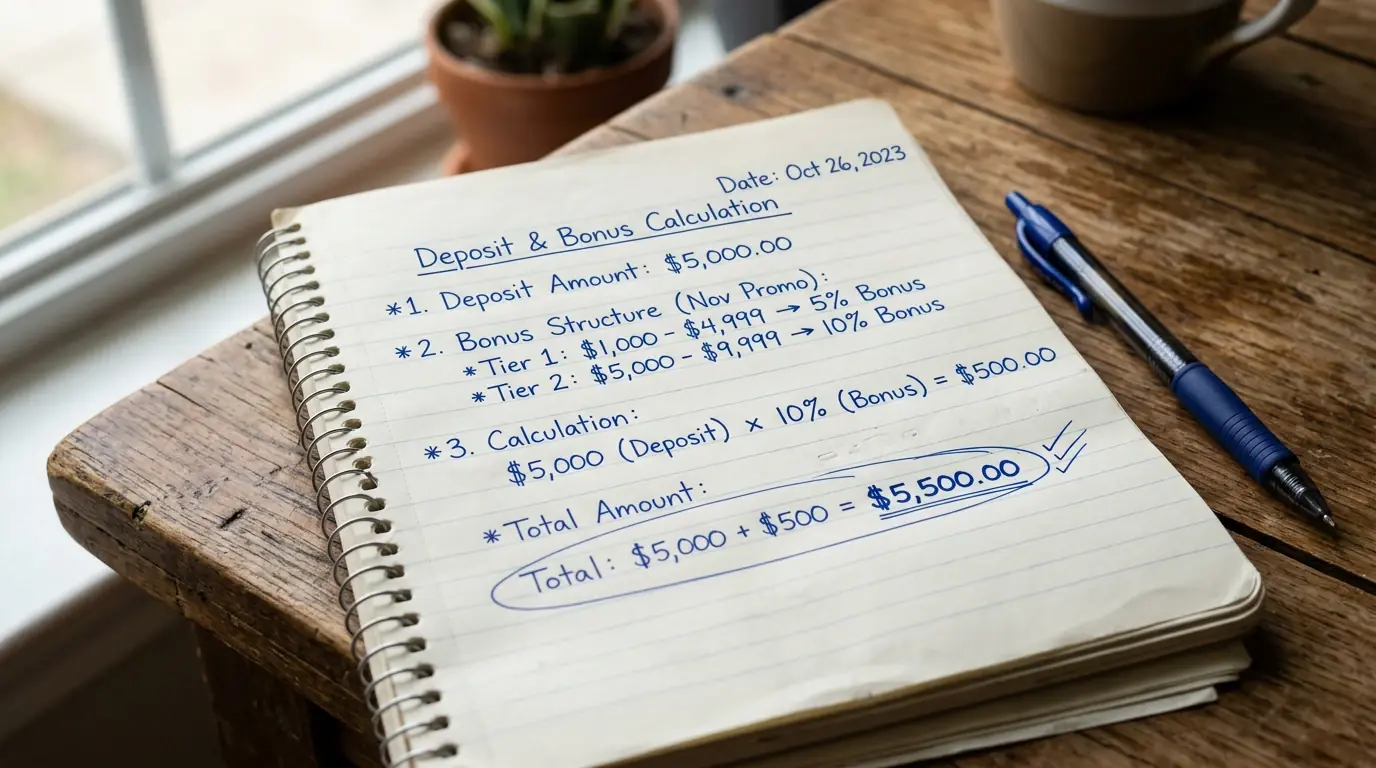 Date: Oct 26, 2023
Deposit & Bonus Calculation
*1. Deposit Amount: $5,000.00
*2. Bonus Structure (Nov Promo):
* Tier 1: $1,000 - $4,999 → 5% Bonus
* Tier 2: $5,000 - $9,999 → 10% Bonus
*3. Calculation:
$5,000 (Deposit) × 10% (Bonus) = $500.00
* Total Amount:
Total: $5,000 + $500 = $5,500.00